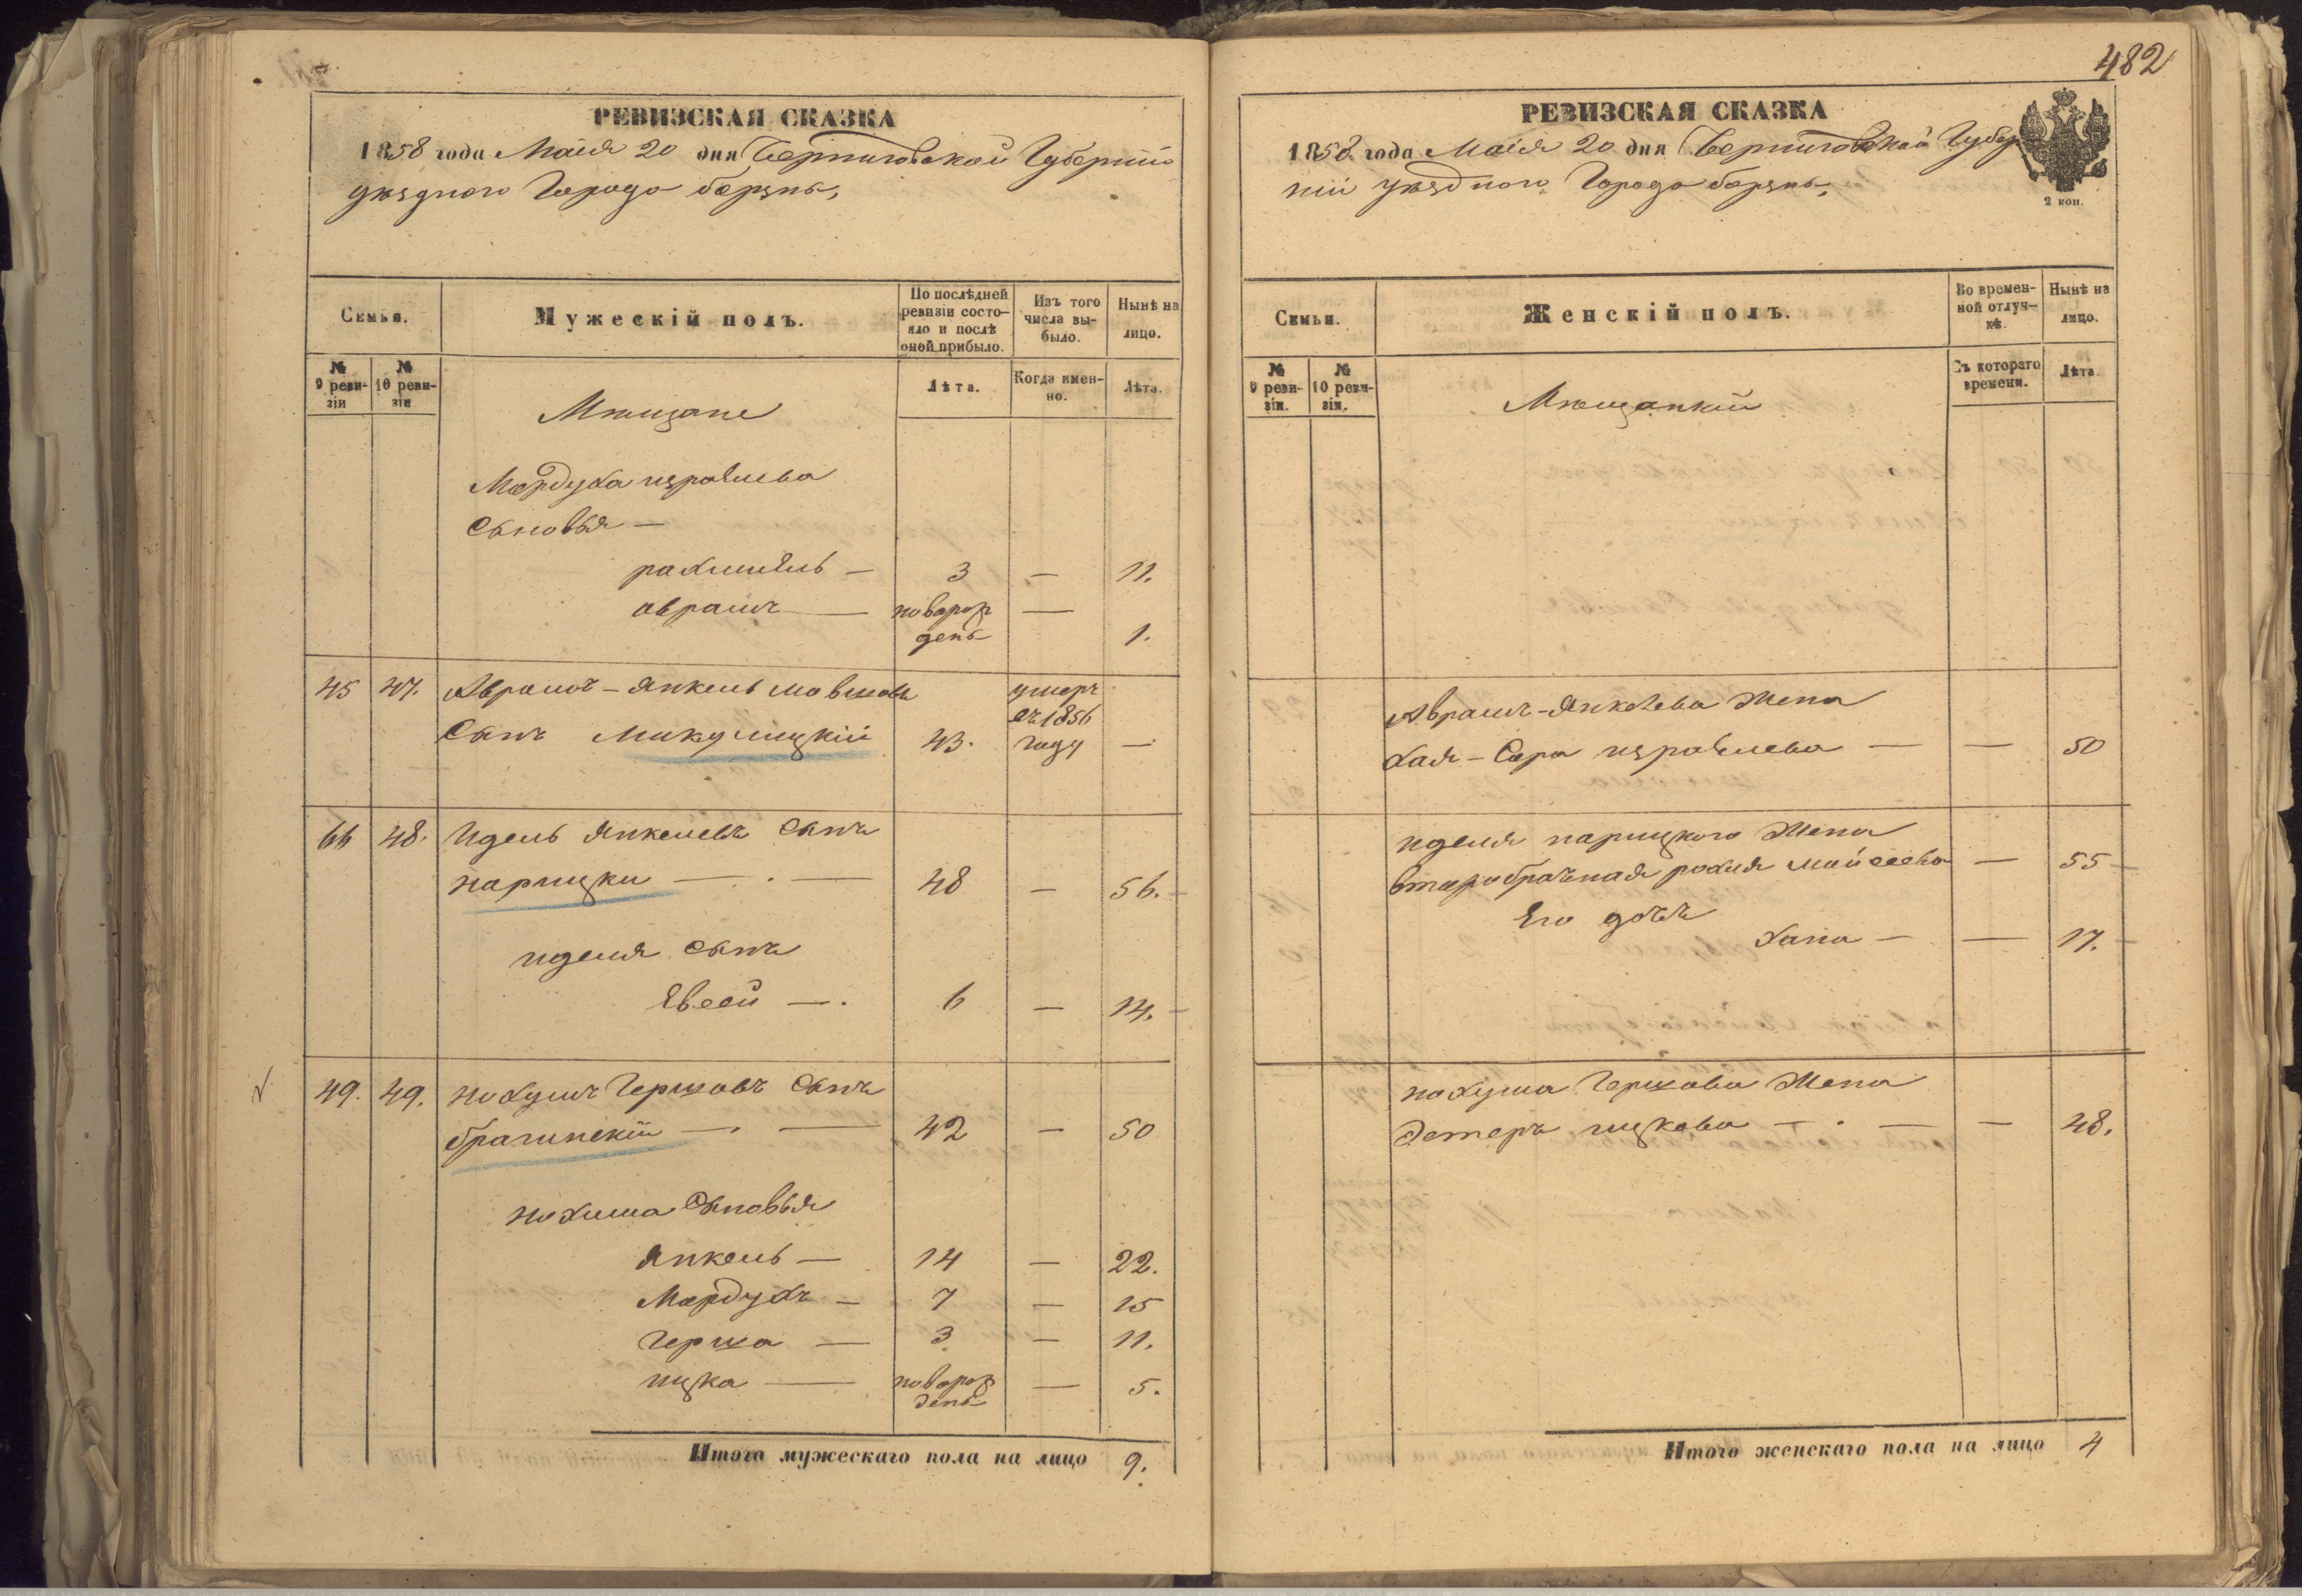 РЕВИЗСКАЯ СКАЗКА
1858 года Маія 20 дня Черниговской Губерніи
уѣзднаго Города борзны,
Семьи.
Мужескій полъ.
По послѣдней ревизіи состо-
яло и послѣ
оной прибыло.
Изъ того
числа вы-
было.
Нынѣ на
лицо.
№
9 реви-
зіи
№
10 реви-
зіи
Лѣта.
Когда имен-
но.
Лѣта.
Мѣщане
Мордуха израилева
Сыновья —
рахмиель — 3 — 11.
аврамъ — новорож
денъ — 1.
45 47. Аврамъ-Янкель мовшовъ
Сынъ Микулицкій 43. умеръ
въ 1856
году —
66 48. Идель Янкелевъ Сынъ
нарицки — 48 — 56.
иделя Сынъ
Евсей — 6 — 14.
49. 49. нохумъ Гершовъ Сынъ
брагинскій — 42 — 50
нохима Сыновья
Янкель — 14 — 22.
Мордухъ — 7 — 15
Герша — 3 — 11.
ицка — новорож
денъ — 5.
Итого мужескаго пола на лицо 9.
482
РЕВИЗСКАЯ СКАЗКА
1858 года Маія 20 дня Черниговской Губер
ніи уѣзднаго Города борзны,
2 коп.
Семьи.
Женскій полъ.
Во времен-
ной отлуч-
кѣ.
Нынѣ на
лицо.
№
9 реви-
зіи.
№
10 реви-
зіи.
Съ котораго
времени.
Лѣта.
Мѣщанкіи
Аврамъ-Янкелева Жена
хая-Сора израилева — — 50
иделя нарицкого Жена
второбрачная рохля мойсеева — 55
Его дочъ
хана — — 17.
нохума Гершова Жена
Эстеръ ицкова — — 48.
Итого женскаго пола на лицо 4